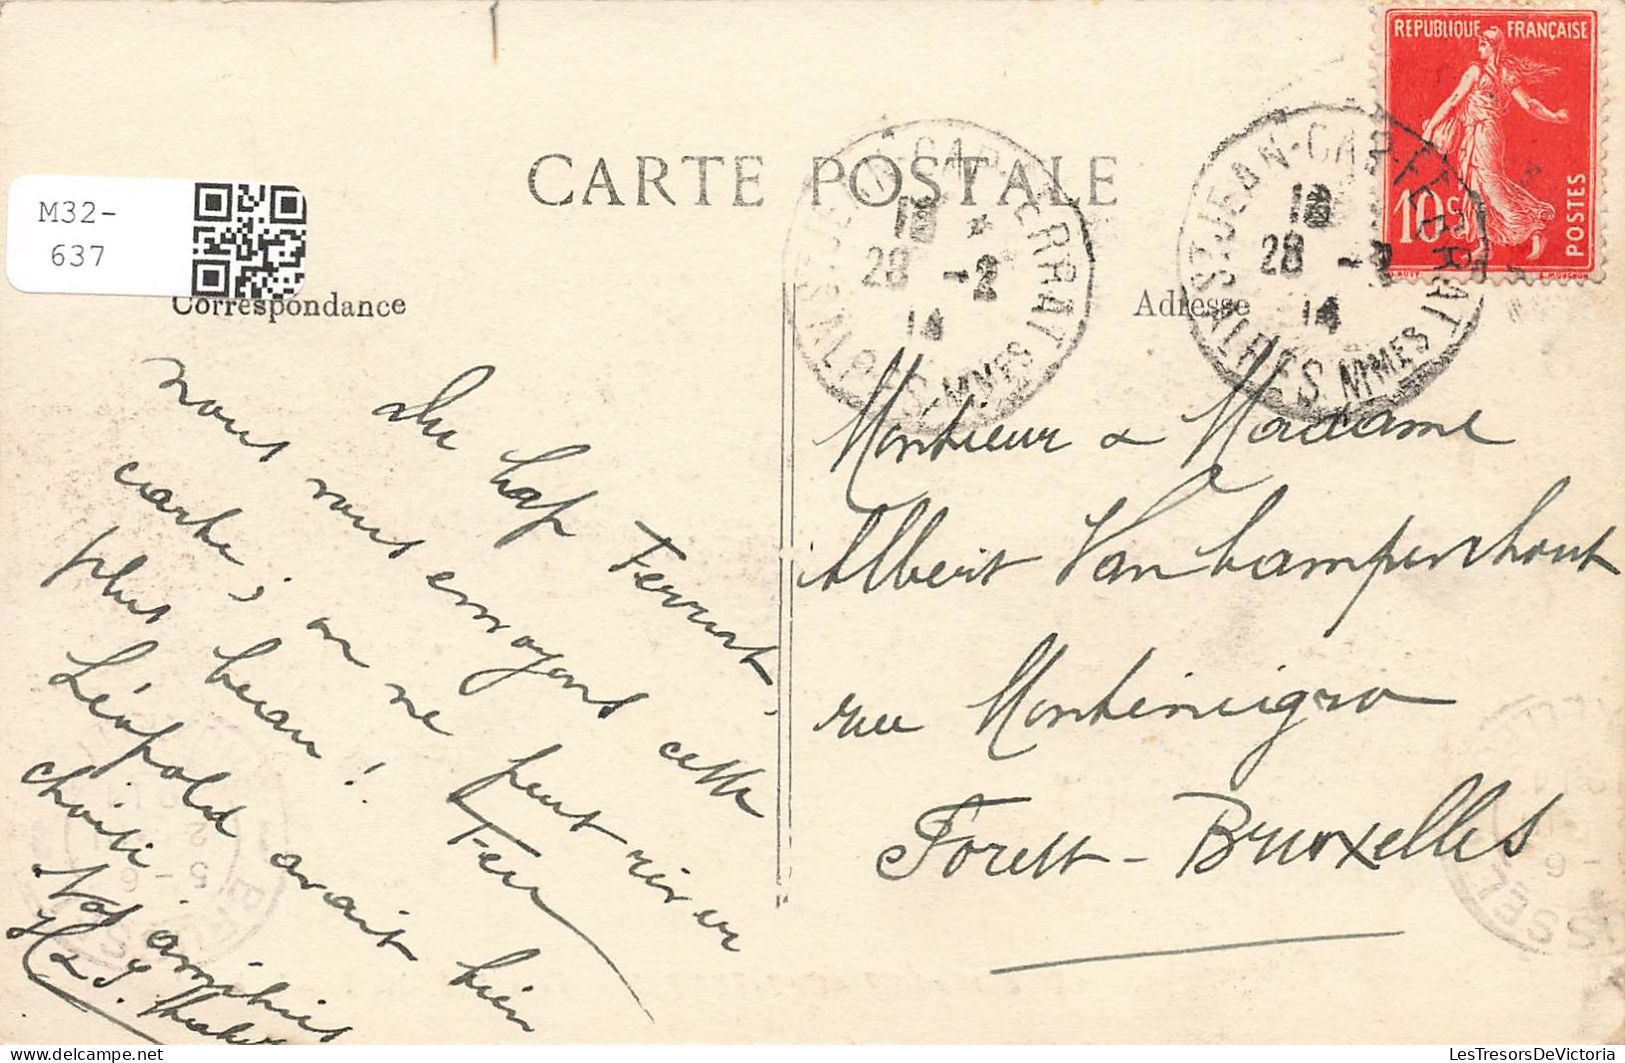 REPUBLIQUE FRANÇAISE
10c
POSTES
CARTE POSTALE
M32-
637
Correspondance
Adresse
ST JEAN-CAP-FERRAT
28 -2
14
ALPES-MMES
ST JEAN-CAP-FERRAT
18
28 -2
14
ALPES MMES
Du Cap Ferrat,
nous vous envoyons cette
carte; on ne peut rêver
plus beau!
Léopold avait bien
choisi
Vos amities
H & J.
Monsieur & Madame
Albert Vancampenhout
rue Montenegro
Forest - Bruxelles
delcampe.net
LesTresorsDeVictoria